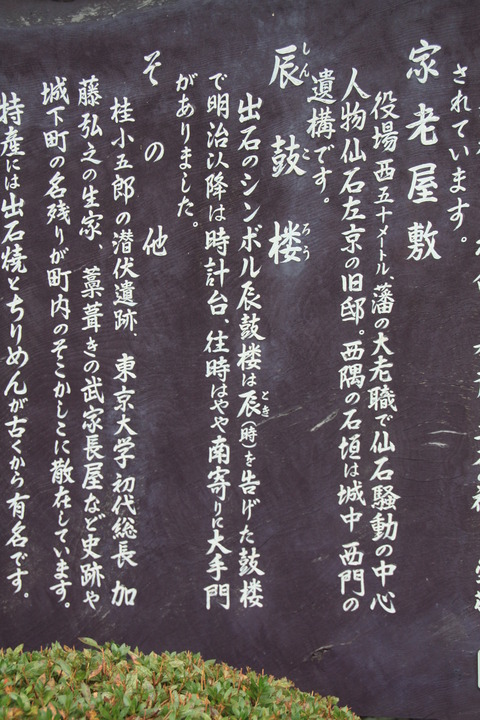 されています。
家老屋敷
役場西五十メートル、藩の大老職で仙石騒動の中心
人物仙石左京の旧邸。西隅の石垣は城中西門の
遺構です。
辰鼓楼
しんころう
出石のシンボル辰鼓楼は辰(時)を告げた鼓楼
とき
で明治以降は時計台、往時はやや南寄りに大手門
がありました。
その他
桂小五郎の潜伏遺跡、東京大学初代総長加
藤弘之の生家、藁葺きの武家長屋など史跡や
城下町の名残りが町内のそこかしこに散在しています。
特産には出石焼とちりめんが古くから有名です。